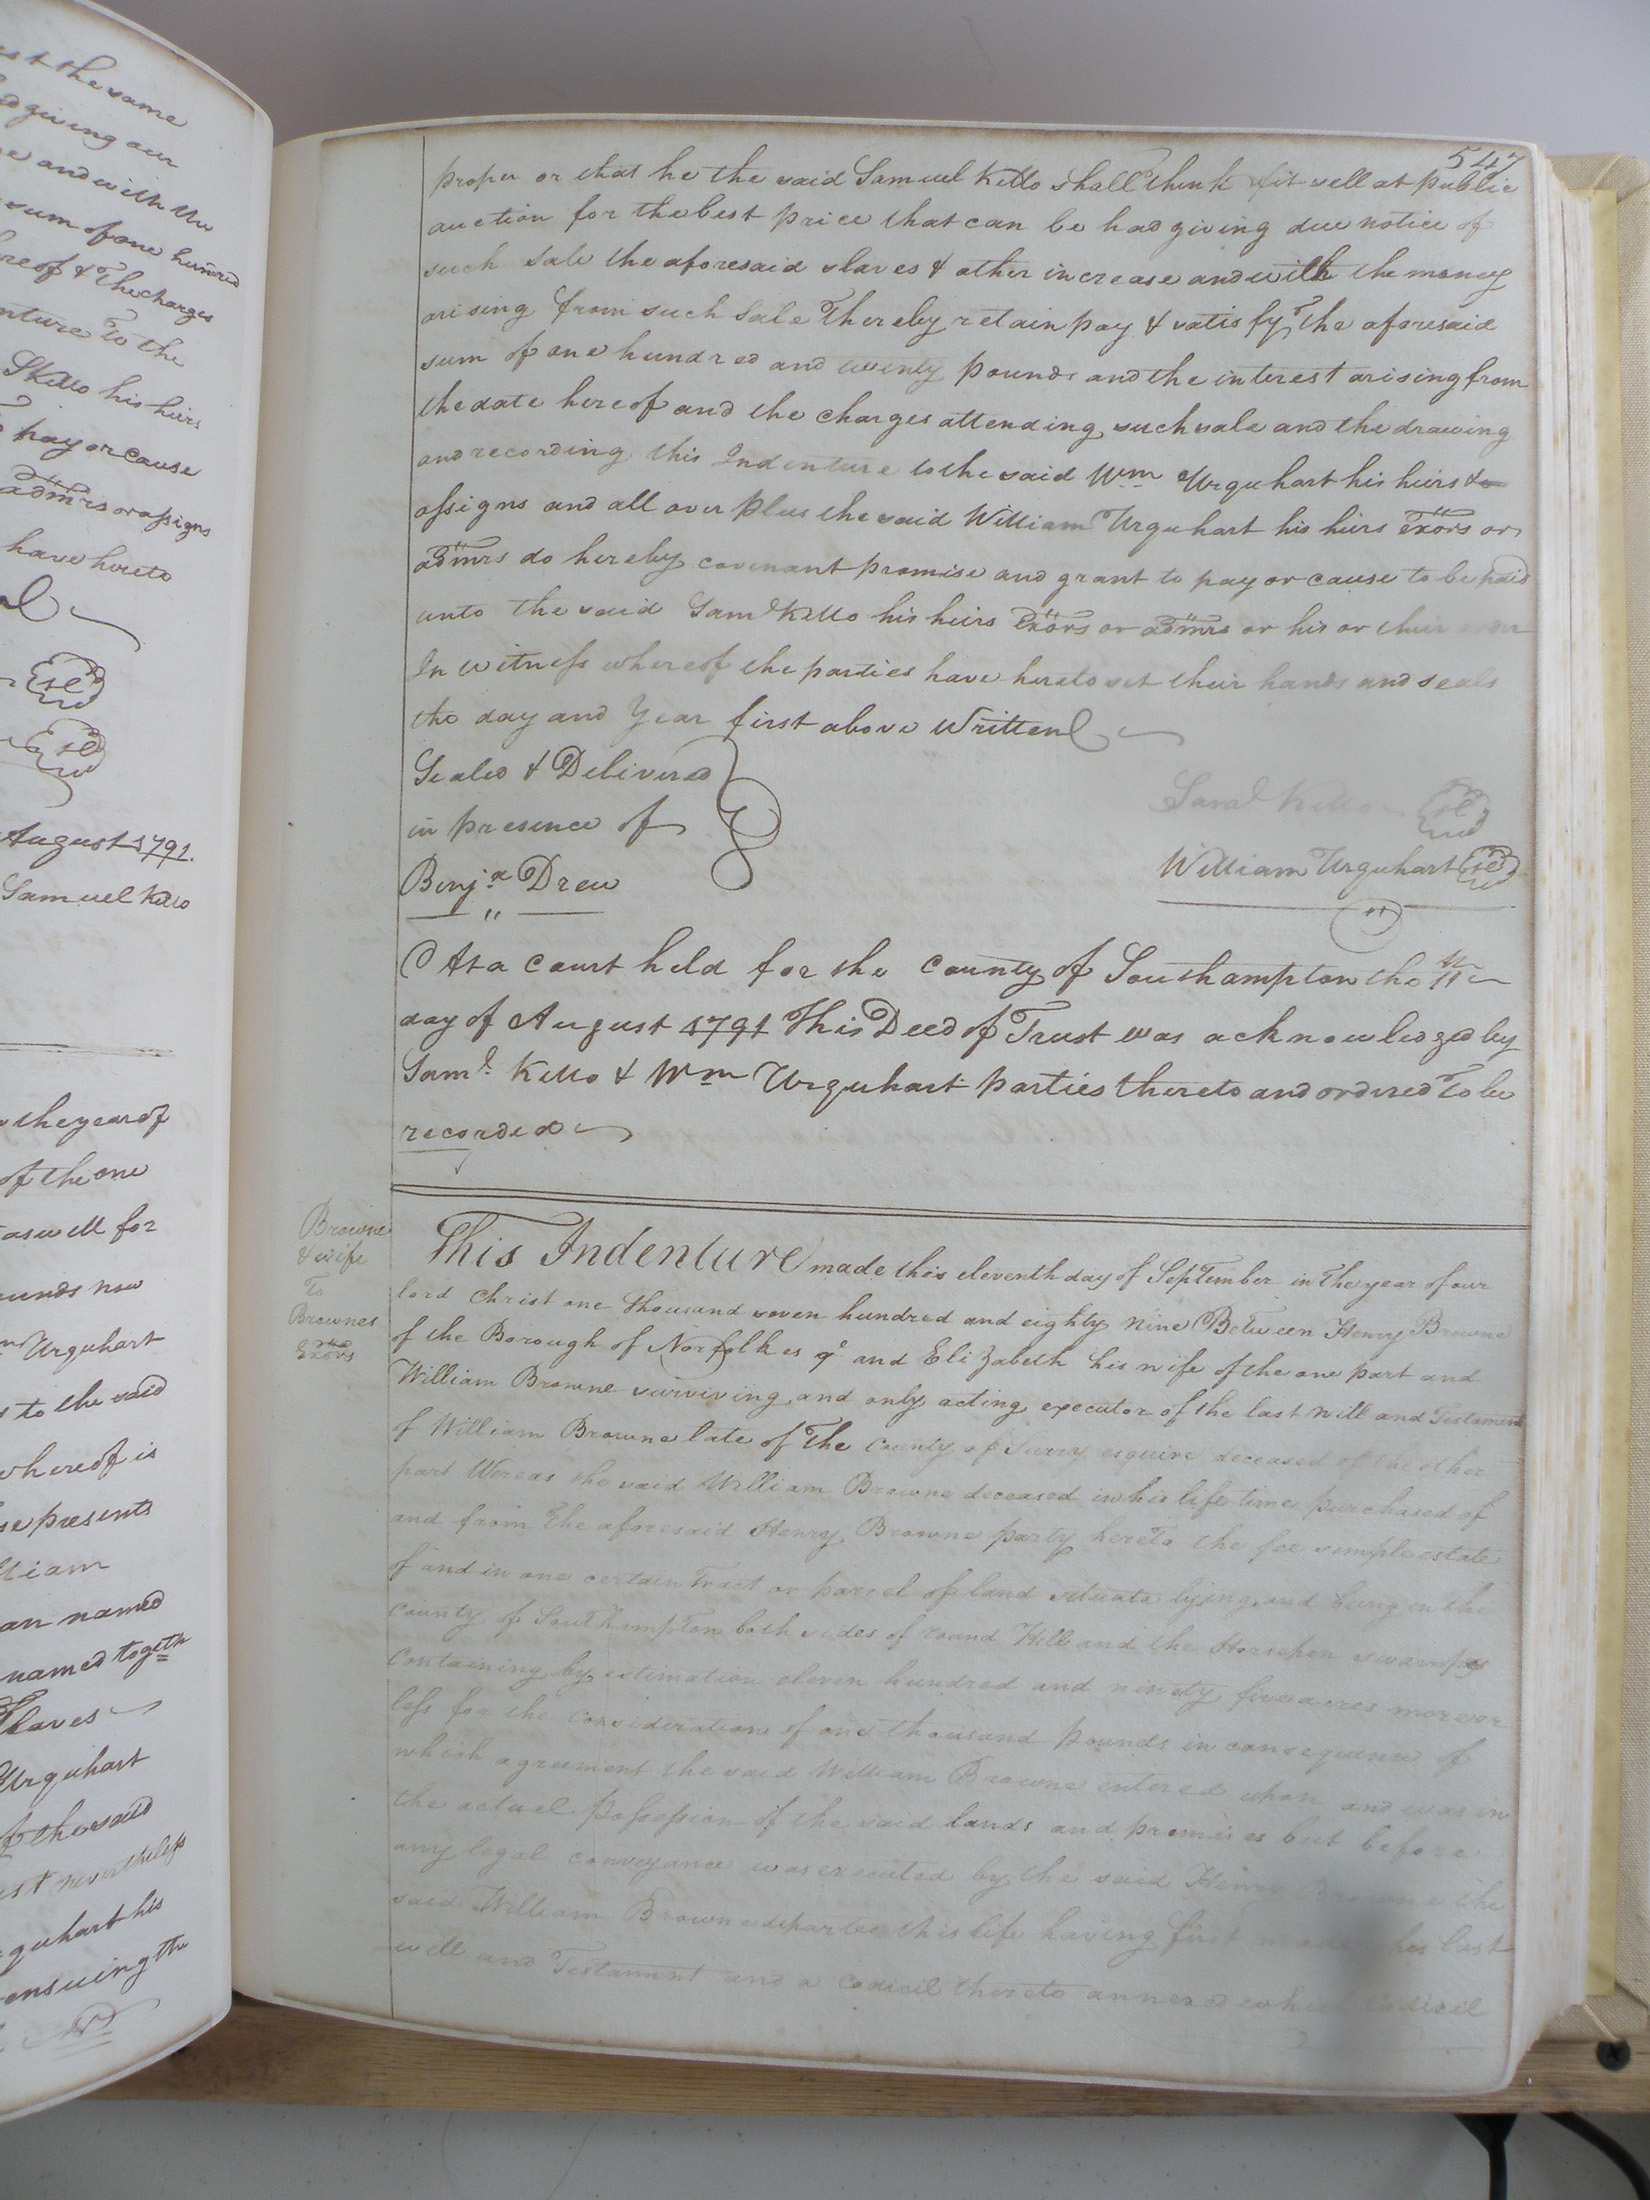 st the same
giving our
and with the
sum of one hundred
hereof & The charges
nture To the
SKello his heirs
pay or cause
adm̃rs or assigns
have hereto
August 1791.
Samuel Kello
the year of
of the one
as well for
ounds now
Urquhart
s to the said
whereof is
se presents
lliam
an named
named togeth
Slaves
Urquhart
of the said
st nevertheless
quhart his
ensuing the
547
proper or that he the said Samuel Kello shall think fit sell at public
auction for the best price that can be had giving due notice of
such Sale the aforesaid slaves & other increase and with the money
arising from such Sale Thereby retain pay & satisfy The aforesaid
sum of one hundred and twenty pounds and the interest arising from
the date hereof and the charges attending such sale and the drawing
and recording this Indenture to the said Wm Urquhart his heirs &
assigns and all over plus the said William Urquhart his heirs Exors or
adm̃rs do hereby covenant promise and grant to pay or cause to be paid
unto the said Saml Kello his heirs Exors or adm̃rs or his or their
In witness whereof the parties have hereto set their hands and seals
the day and Year first above Written
Sealed & Delivered
in presence of
Benja Drew
Saml Kello
William Urquhart
At a court held for the county of Southampton the 11th
day of August 1791 This Deed of Trust was acknowledged by
Saml Kello & Wm Urquhart parties thereto and ordered To be
recorded
Browne
& wife
To
Brownes
Exors
This Indenture made this eleventh day of September in The year of our
lord Christ one thousand seven hundred and eighty nine Between Henry Browne
of the Borough of Norfolk esqr and Elizabeth his wife of the one part and
William Browne surviving and only acting executor of the last will and Testament
of William Browne late of The county of Surry esquire deceased of the other
part Wereas the said William Browne deceased in his life time purchased of
and from The aforesaid Henry Browne party hereto the fee simple estate
of and in one certain Tract or parcel of land situate lying and being in the
County of Southampton both sides of round Hill and the Horsepen swamps
Containing by estimation eleven hundred and ninety five acres more or
less for the consideration of one thousand pounds in consequence of
which agreement the said William Browne entered upon and was in
the actual possession of the said lands and premises but before
any legal conveyance was executed by the said Henry Browne the
said William Browne departed this life having first made his last
will and Testament and a codicil thereto annexed which codicil